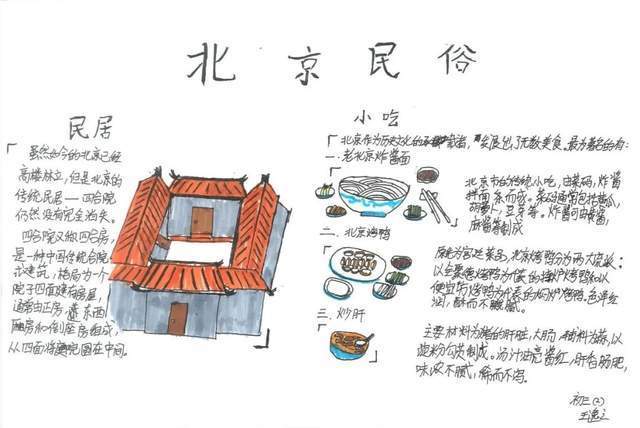 北京民俗
民居
虽然如今的北京已经
高楼林立,但是北京的
传统民居—四合院
仍然没有完全消失。
四合院又做四合房,
是一种中国传统合院
式建筑,格局为一个
院子四面建有房屋,
通常由正房、 东西
厢房和倒座房组成,
从四面将庭院围在中间。
小吃
北京作为历史文化的 发展出了无数美食。最为著名的有:
一、老北京炸酱面
北京市的传统小吃,由菜码,炸酱
拌面条而成。 黄瓜,
胡萝卜、豆芽等。炸酱
制成
二、北京烤鸭
原为宫廷菜品,北京烤鸭分为两大流派:
以全聚德烤鸭为代表的挂炉烤鸭和以
便宜坊烤鸭为代表的焖炉烤鸭。色泽红
润,酥而不腻。
三、炒肝
主要材料为猪的肝脏,大肠,辅料为蒜,以
淀粉勾芡制成。汤汁油亮酱红,肝香肠肥,
味浓不腻,稀而不澥。
初三(2)